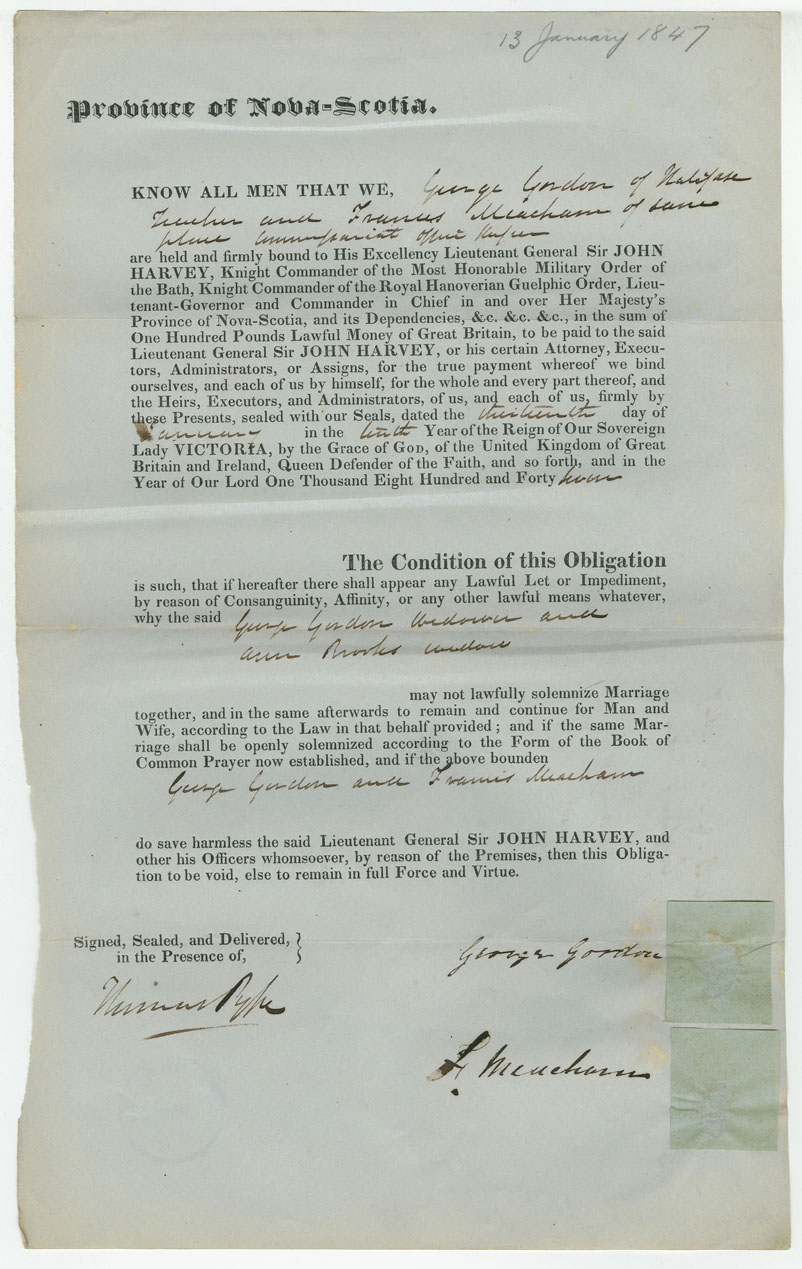 13 January 1847
Province of Nova-Scotia.
KNOW ALL MEN THAT WE, George Gordon of Halifax
Teacher and Francis Meacham of same
place Commissariat office
are held and firmly bound to His Excellency Lieutenant General Sir JOHN
HARVEY, Knight Commander of the Most Honorable Military Order of
the Bath, Knight Commander of the Royal Hanoverian Guelphic Order, Lieu-
tenant-Governor and Commander in Chief in and over Her Majesty's
Province of Nova-Scotia, and its Dependencies, &c. &c. &c., in the sum of
One Hundred Pounds Lawful Money of Great Britain, to be paid to the said
Lieutenant General Sir JOHN HARVEY, or his certain Attorney, Execu-
tors, Administrators, or Assigns, for the true payment whereof we bind
ourselves, and each of us by himself, for the whole and every part thereof, and
the Heirs, Executors, and Administrators, of us, and each of us, firmly by
these Presents, sealed with our Seals, dated the thirteenth day of
January in the tenth Year of the Reign of Our Sovereign
Lady VICTORIA, by the Grace of GOD, of the United Kingdom of Great
Britain and Ireland, Queen Defender of the Faith, and so forth, and in the
Year of Our Lord One Thousand Eight Hundred and Forty seven
The Condition of this Obligation
is such, that if hereafter there shall appear any Lawful Let or Impediment,
by reason of Consanguinity, Affinity, or any other lawful means whatever,
why the said George Gordon widower and
Ann Brooks widow
may not lawfully solemnize Marriage
together, and in the same afterwards to remain and continue for Man and
Wife, according to the Law in that behalf provided; and if the same Mar-
riage shall be openly solemnized according to the Form of the Book of
Common Prayer now established, and if the above bounden
George Gordon and Francis Meacham
do save harmless the said Lieutenant General Sir JOHN HARVEY, and
other his Officers whomsoever, by reason of the Premises, then this Obliga-
tion to be void, else to remain in full Force and Virtue.
Signed, Sealed, and Delivered,
in the Presence of,
George Gordon
Thomas Pyke
F. Meacham